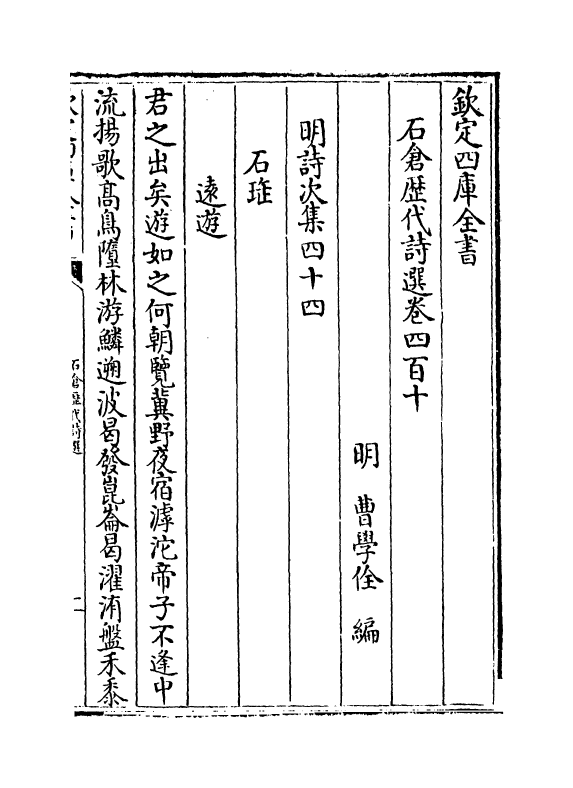 欽定四庫全書
石倉歴代詩選卷四百十
明 曹學佺 編
明詩次集四十四
石珤
遠遊
君之出矣遊如之何朝覽冀野夜宿滹沱帝子不逢中
流揚歌髙鳥墮林游鱗遡波曷發崑崙曷濯洧盤禾黍
石倉歴代詩選